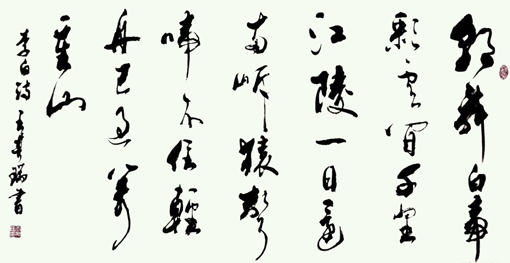 朝辭白帝
彩雲間千里
江陵一日還
兩岸猿聲
啼不住輕
舟已過萬
重山
李白詩 王瑞書